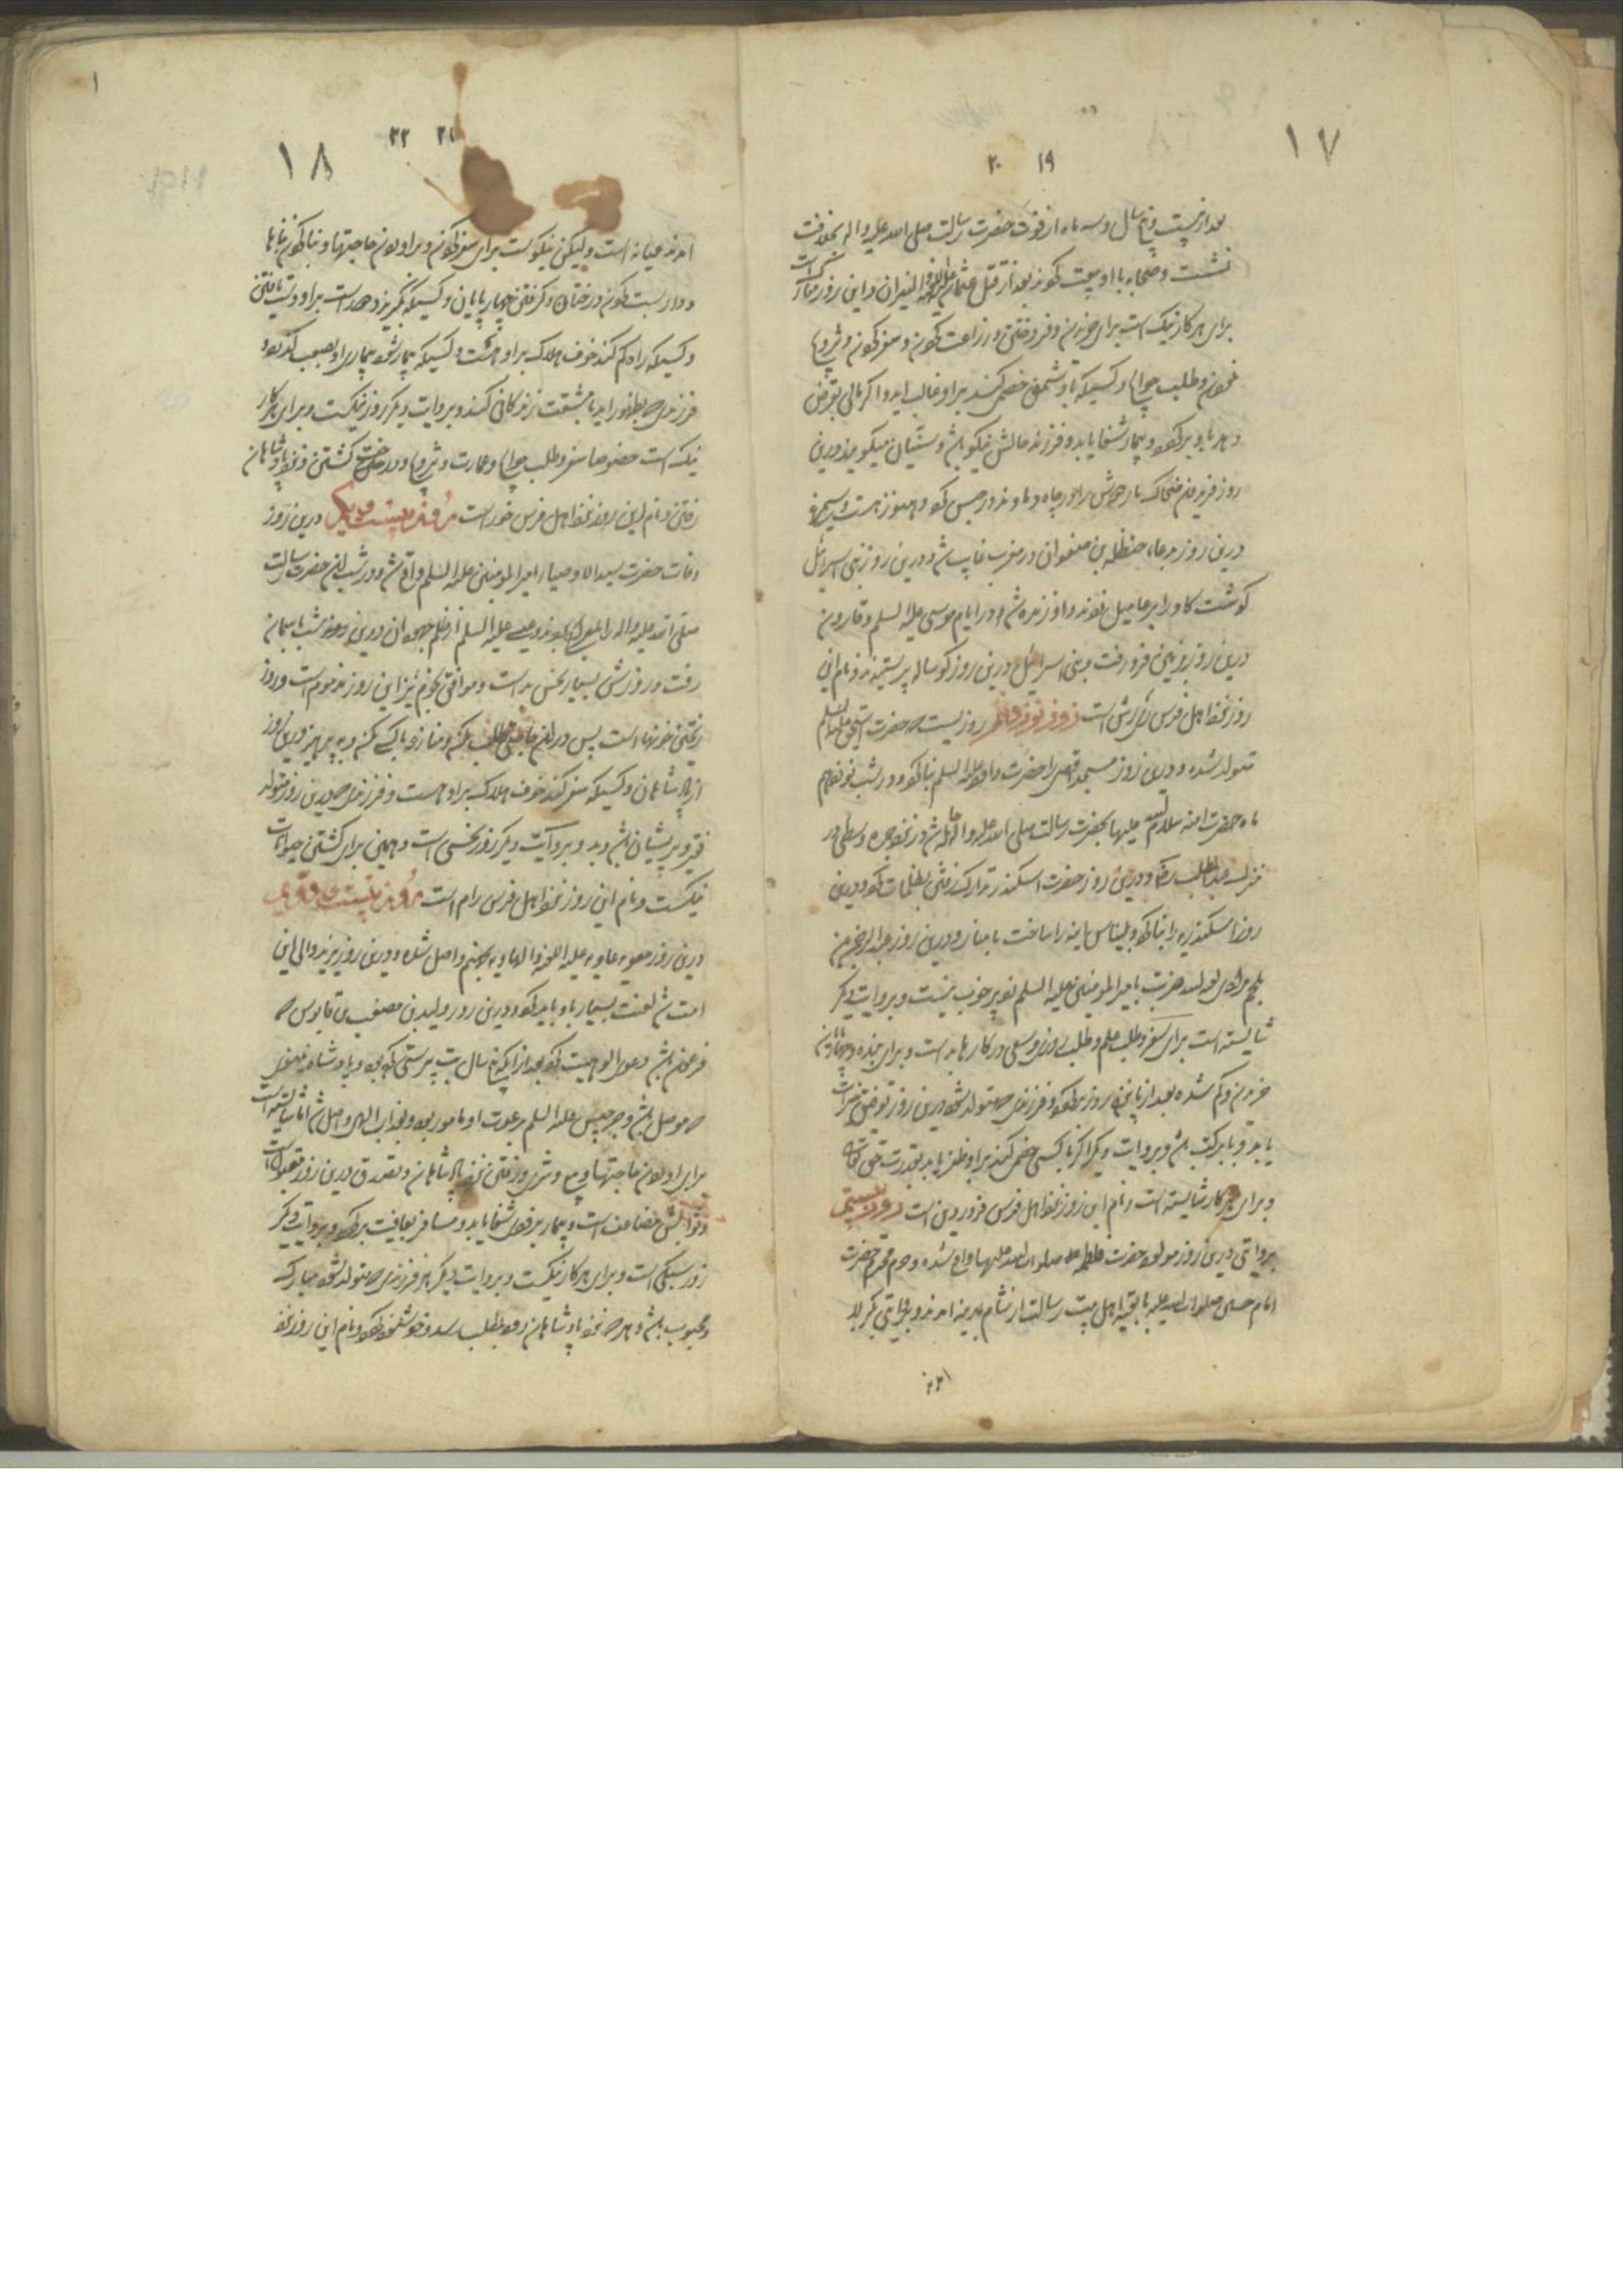 ۱۷
۱۹ ۲۰
بعد از بیست و پنج سال و سه ماه از فوت حضرت رسالت صلی الله علیه و اله بخلافت
نشست و صحابه با او بیعت کردند بعد از قتل عثمان علیه و النیران و این روز مبارک است
برای هر کار نیک است برای خریدن و فروختن و زراعت کردن و سفر کردن و تزویج
نمودن و طلب حوایج و کسیکه با دشمن خصمی کند بر او غالب اید و اکر مالی بقرض
دهد باو برکردد و بیمار شفا یابد و فرزند حالش نیکو باشد و سنیان میکویند درین
روز فریدون ضحاک ماردوش را در چاه دماوند در حبس کرد و هنوز هست و
درین روز بدعاء حنظله بن صفوان در مغرب غایب شد و درین روز بنی اسرائیل
کوشت کاو را بر عامیل زدند و او زنده شد و در ایام موسی علیه السلم و قارون
درین روز بزمین فرو رفت و بنی اسرائیل درین روز کوساله پرستیدند و نام این
روز نزد اهل فرس رش است روز نوزدهم روزیست که حضرت اسحق علیه السلم
متولد شده و درین روز مسجد اقصی را حضرت داود علیه السلم بنا کرد و در شب نوزدهم
ماه حضرت امنه سلام الله علیها بحضرت رسالت صلی الله علیه و اله حامله شد نزد جمره وسطی در
منزل عبدالمطلب و درین روز حضرت اسکندر تدارک رفتن بظلمات کرد و درین
روز اسکندریه را بنا کرد و بلیناس اینه را ساخت با منار و درین روز عبدالرحمن بن
ملجم مرادی لعنه الله ضربت بامیر المومنین علیه السلم زد پر خوب نیست و بروایت دیکر
شایسته است برای سفر و طلب علم و طلب روزی و سعی در کارها بد است و برای بنده و چهارپا
خریدن و کم شده بعد از پانزده روز برکردد و فرزندی که متولد شود درین روز توفیق خیرات
یابد و با برکت باشد و بروایت دیکر اکر با کسی خصمی کند بر او ظفر یابد بقدرت حق تعالی
و برای هر کار شایسته است و نام این روز نزد اهل فرس فروردین است روز بیستم
بروایتی درین روز مولود حضرت فاطمه صلوات الله علیها واقع شده و حرم محترم حضرت
امام حسین صلوات الله علیه با بقیه اهل بیت رسالت از شام بمدینه امدند و بروایتی بکربلا
۱۸
۲۱ ۲۲
امدند میانه است و لیکن نیکوست برای سفر کردن و براوردن حاجتها و بنا کردن بناها
و داربست کردن درختان و کرفتن چهارپایان و کسیکه بکریزد دور است بر او دست یافتن
و کسیکه راه کم کند خوف هلاک بر او هست و کسیکه بیمار شود بیماری او بصعب کذرد و
فرزندی که بظهور اید با مشقت زندکانی کند و بروایت دیکر روز نیکست و برای هر کار
نیک است خصوصا سفر و طلب حوایج و عمارت و تزویج و درخت کشتن و نزد پادشاهان
رفتن و نام این روز نزد اهل فرس خور است روز بیست و یکم درین روز
وفات حضرت سید الاوصیاء امیر المومنین علیه السلم واقع شد و در شب این حضرت رسالت
صلی الله علیه و اله را بمعراج بردند و عیسی علیه السلم از ظلم جهودان درین شب باسمان
رفت و روزش بسیار نحس بد است و موافق نجوم نیز این روز مذموم است و روز
ریختن خونها است پس در ان حاجتی طلب مکن و منازعه با کسی مکن و بپرهیز درین روز
از پادشاهان و کسیکه سفر کند خوف هلاک بر او هست و فرزندی که درین روز متولد
فقیر و پریشان باشد و بد و بروایت دیکر روز نحسی است و همین برای کشتن حیوانات
نیکست و نام این روز نزد اهل فرس رام است روز بیست و دویم
درین روز معویه عاویه علیه اللعنة و الهاویه بجهنم واصل شد و درین روز یزید والی این
امت شد لعنت بسیار باو باید کرد و درین روز ولید بن مصعب بن قابوس که
فرعون باشد دعوی الوهیت کرد بعد از انکه سال بت پرستی کرده بود و پادشاه
که موصل باشد و جرجیس علیه السلم بدعوت او مامور بود و بعذاب الهی واصل شد اما شایسته است
برای اوردن حاجتها و بیع و شری و رفتن نزد پادشاهان و تصدق درین روز مقبول است
و ثوابش مضاعف است و بیمار بزودی شفا یابد و مسافر بعافیت برکردد و بروایت دیکر
روز سبکی است و برای هر کار نیکست و بروایت دیکر هر فرزندی که متولد شود مبارک
و محبوب باشد و هر که نزد پادشاهان رود بمطلب رسد و خوشنود کردد و نام این روز نزد